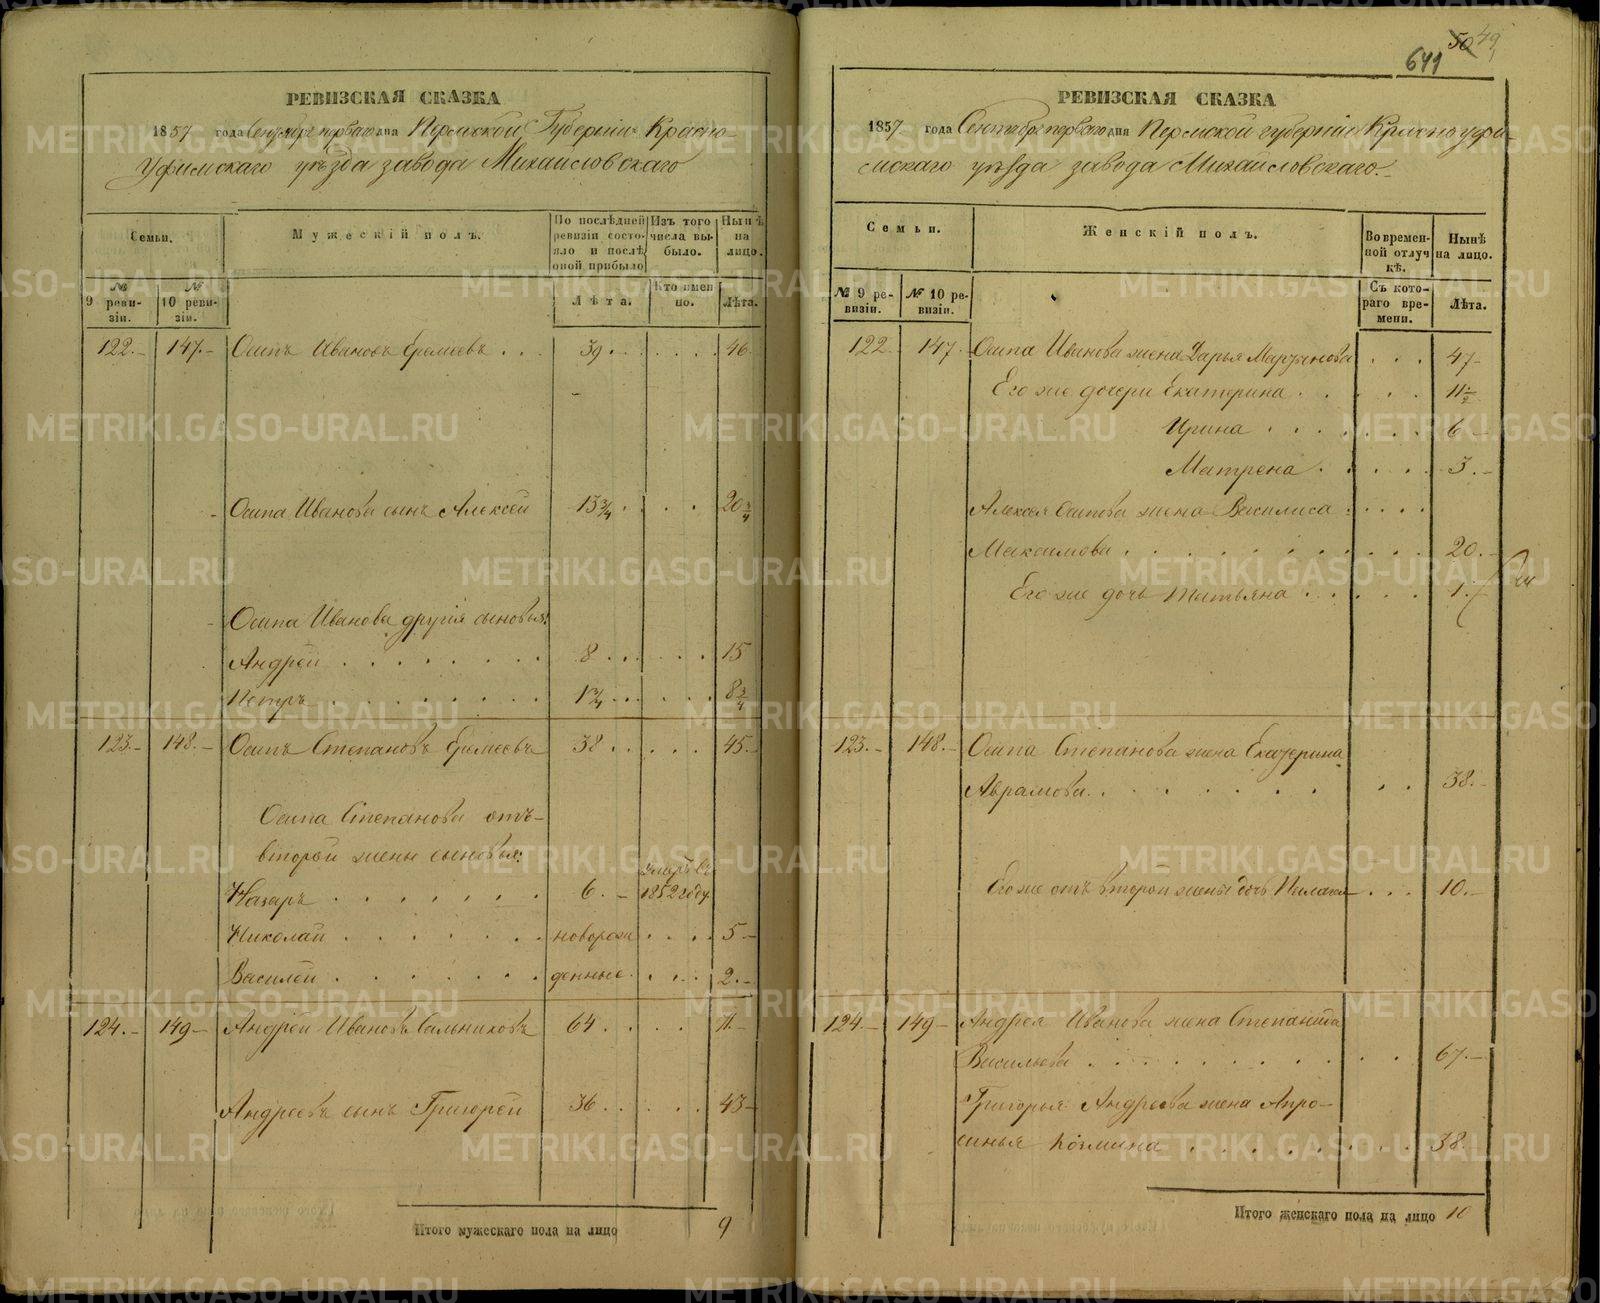 РЕВИЗСКАЯ СКАЗКА
1857 года Сентября перваго дня Пермской Губерніи Красно-
Уфимскаго уѣзда завода Михайловскаго
Семьи.
Мужескій полъ.
По послѣдней ревизіи состояло и послѣ оной прибыло
Изъ того числа выбыло.
Нынѣ на лицо.
№ 9 ревизіи.
№ 10 ревизіи.
Лѣта.
Кто именно.
Лѣта.
122.- 147.- Осипъ Ивановъ Еремеевъ . . . 39 . . . . . . 46
Осипа Иванова сынъ Алексей 13 3/4 . . . . 20 3/4
Осипа Иванова другія сыновья:
Андрей . . . . . . . . 8 . . . . . . 15
Петръ . . . . . . . . 1 3/4 . . . . . 8 3/4
123.- 148.- Осипъ Степановъ Еремеевъ 38 . . . . . 45.-
Осипа Степанова отъ
второй жены сыновья:
Назаръ . . . . . . . 6. - умеръ въ 1852 году.
Николай . . . . . . . новорож . . . . 5-
Василей . . . . . . . денные . . . . 2.-
124.- 149- Андрей Ивановъ Сальниковъ 64 . . . . 71-
Андреевъ сынъ Григорей 36 . . . . . 43-
Итого мужескаго пола на лицо 9
50 49
641
РЕВИЗСКАЯ СКАЗКА
1857 года Сентября перваго дня Пермской губерніи Красноуфи-
мскаго уѣзда завода Михайловскаго.-
Семьи.
Женскій полъ.
Во временной отлучкѣ.
Нынѣ на лицо.
№ 9 ревизіи.
№ 10 ревизіи.
Съ котораго времени.
Лѣта.
122 147. Осипа Иванова жена Дарья Мартьянова . . . 47-
Его же дочери Екатерина . . . . . . 11 1/2
Ирина . . . . . . . 6 -
Матрена . . . . . . 3.-
Алексея Осипова жена Василиса . . . . .
Максимова . . . . . . . . . . . 20.-
Его же дочь Татьяна . . . . . . 1.-
123.- 148.- Осипа Степанова жена Екатерина
Аврамова . . . . . . . . . . 38.-
Его же отъ второй жены дочь Пелагея . . . 10.-
124- 149- Андрея Иванова жена Степанида
Васильева . . . . . . . . . . 67.-
Григорья Андреева жена Апро-
синья Козмина . . . . . . . . 38.
Итого женскаго пола на лицо 10
METRIKI.GASO-URAL.RU